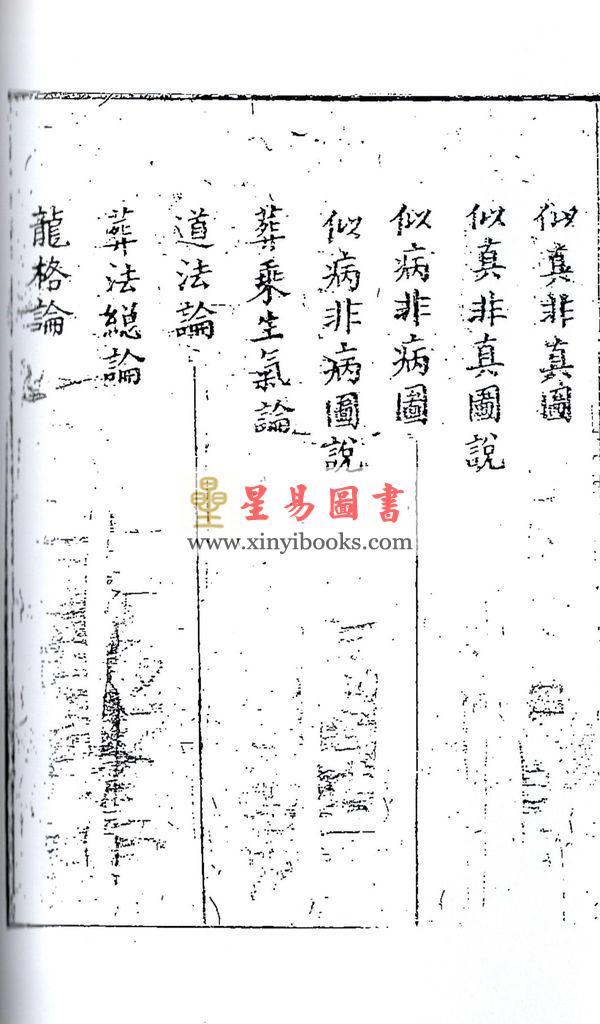 似真非真圖
似真非真圖說
似病非病圖
似病非病圖說
葬乘生氣論
道法論
葬法總論
龍格論
星易圖書
www.xinyibooks.com